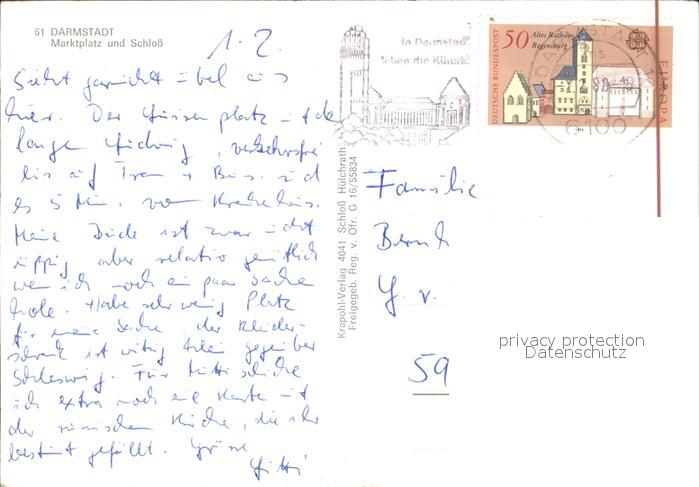 61 DARMSTADT
Marktplatz und Schloß
1.2.
Sieht gar nicht übel aus
hier. Der platz mit dem
langen Ludwig, verkehrsfrei
bis auf Tram + Bus. und
es 5 Min. vom Krankenhaus.
Meine Bude ist zwar nicht
üppig aber relativ gemütlich
wenn ich noch ein paar Sachen
hole. Habe sehr wenig Platz
für meine Sachen, der Kleider-
schrank ist winzig klein gegenüber
Schleswig. Für Mutti schicke
ich extra noch eine Karte mit
der russischen Kirche, die ihr
bestimmt gefällt. Grüsse
Krapohl-Verlag 4041 Schloß Hülchrath
Freigegeb. Reg. v. Ofr. G 16/55834
In Darmstadt
leben die Künste
DEUTSCHE BUNDESPOST
50 Altes Rathaus
Regensburg
EUROPA
DARMSTADT
6100
Familie
Y. v.
59
privacy protection
Datenschutz